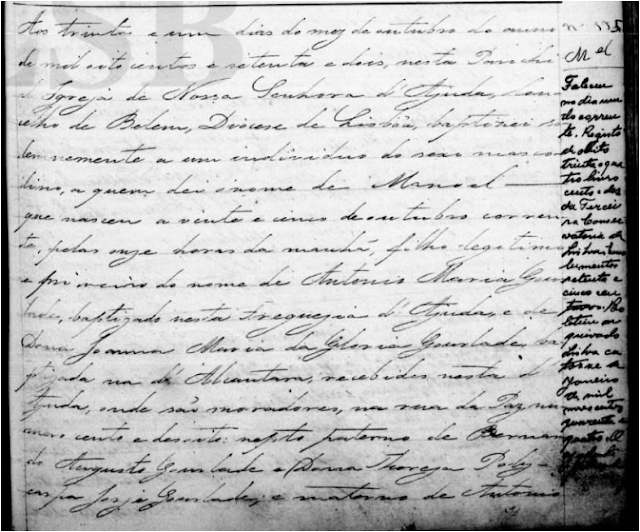 Aos trinta e um dias do mez de outubro do anno
de mil oito centos e setenta e dois, nesta Parochi
al Igreja de Nossa Senhora d'Ajuda, Con
celho de Belem, Diocese de Lisbôa, baptizei so
lemnemente a um individuo do sexo mascu
lino, a quem dei o nome de Manoel
que nasceu a vinte e cinco de outubro corren
te, pelas onze horas da manhã, filho legitimo
e primeiro do nome de Antonio Maria Gour
lade, baptizado nesta freguezia d'Ajuda, e de
Dona Joanna Maria da Gloria Gourlade, ba
ptizada na d'Alcantara, recebidos nesta d'
Ajuda, onde são moradores, na rua da Paz nu
mero cento e desoito: nepto paterno de Bernar
do Augusto Gourlade e Dona Thereza Poly-
carpa Jorje Gourlade, e materno de Antonio
Mel
Faleceu
no dia um
do corren
te. Registo
de obito
trinta e qua
tro
cento e dez
da Tercei
ra Conser
vatoria de
Lisboa
setenta e
cinco
Lisboa
Janeiro
de mil
novecentos
quarenta e
quatro